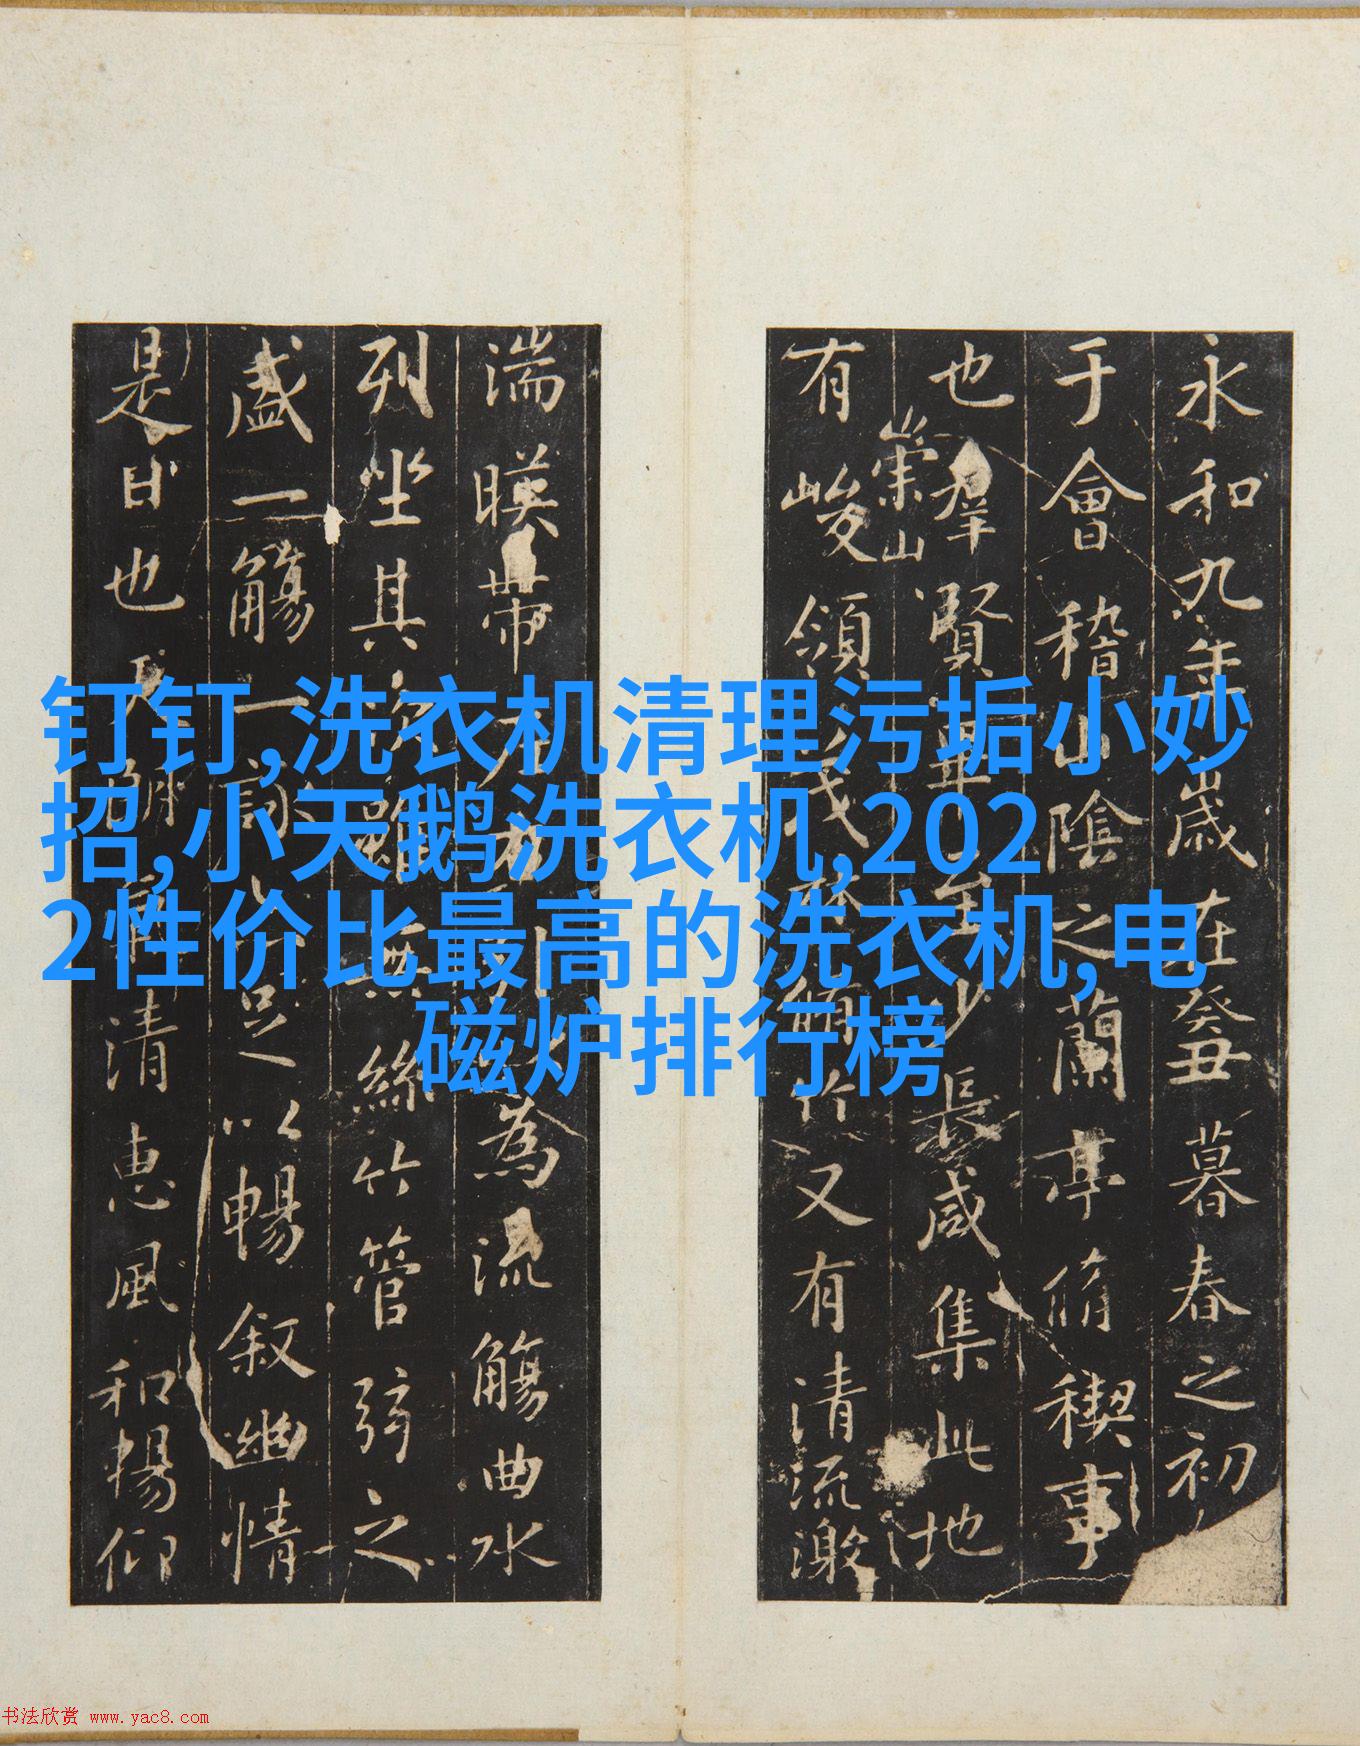 永和九年歲在癸丑暮春之初
于會稽山陰之蘭亭脩稧事
也群賢畢至少長咸集此地
崇山
有峻領茂林脩竹又有清流激
湍暎帶左右引以為流觴曲水
列坐其次雖無絲竹管弦之
盛一觴一詠亦足以暢敘幽情
是日也天朗氣清惠風和暢仰
钉钉,洗衣机清理污垢小妙
招,小天鹅洗衣机,202
2性价比最高的洗衣机,电
磁炉排行榜
书法欣赏 www.yac8.com